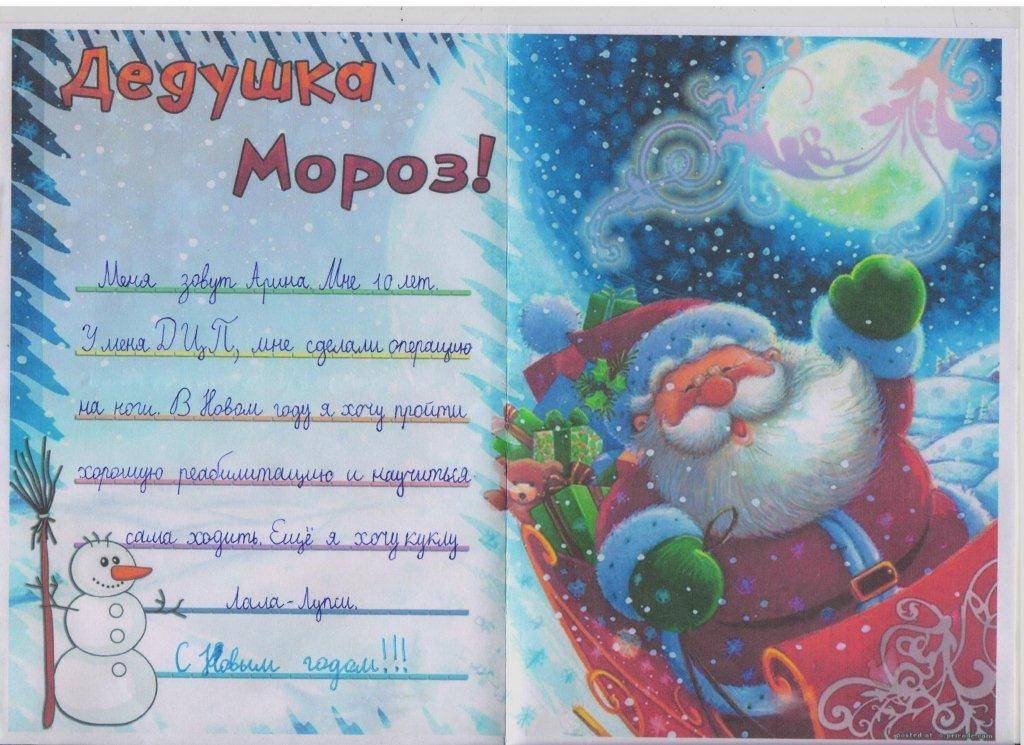 Дедушка
Мороз!
Меня зовут Арина. Мне 10 лет.
У меня ДЦП, мне сделали операцию
на ноги. В Новом году я хочу пройти
хорошую реабилитацию и научиться
сама ходить. Ещё я хочу куклу
Лала-Лупси.
С Новым годом!!!